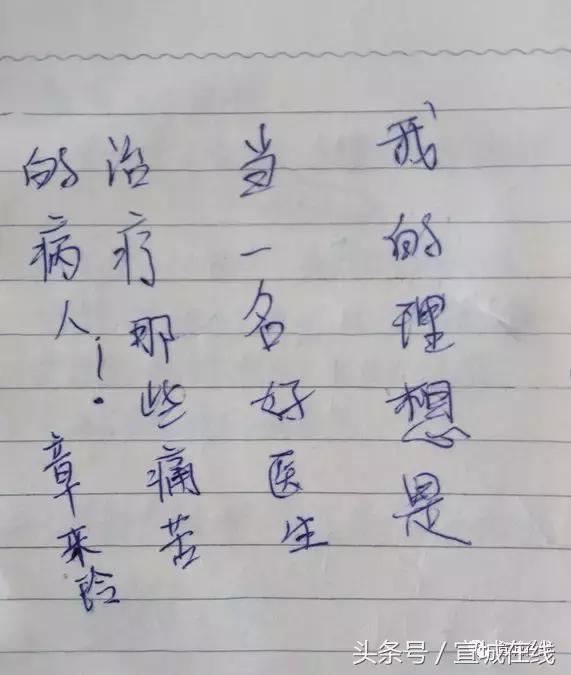 我的理想是
当一名好医生
治疗那些痛苦
的病人!
章来玲
头条号/宣城在线